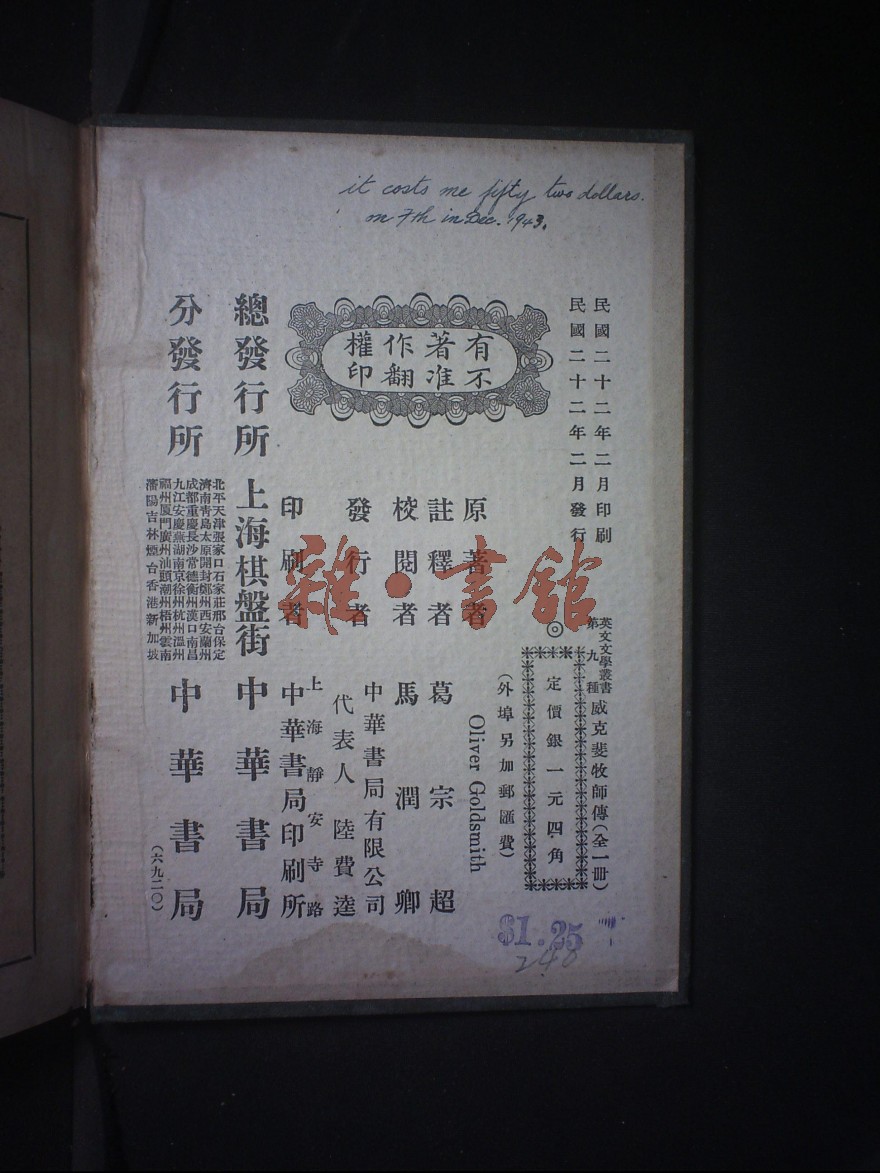 it costs me fifty two dollars.
on 7th in Dec. 1943.
民國二十二年二月印刷
民國二十二年二月發行
有著作權
不准翻印
英文文學叢書
第九種
威克斐牧師傳(全一冊)
◎定價銀一元四角
(外埠另加郵匯費)
原著者 Oliver Goldsmith
註釋者 葛宗超
校閱者 馬潤卿
發行者 中華書局有限公司
代表人 陸費逵
印刷者 上海靜安寺路
中華書局印刷所
總發行所 上海棋盤街 中華書局
分發行所
北平天津張家口石家莊邢台保定
濟南青島太原開封鄭州西安蘭州
成都重慶長沙常德衡州漢口南昌
九江安慶蕪湖南京徐州杭州溫州
福州厦門廣州汕頭潮州梧州雲南
瀋陽吉林煙台香港新加坡
中華書局
(六九二〇)
雜·書館
$1.25
248